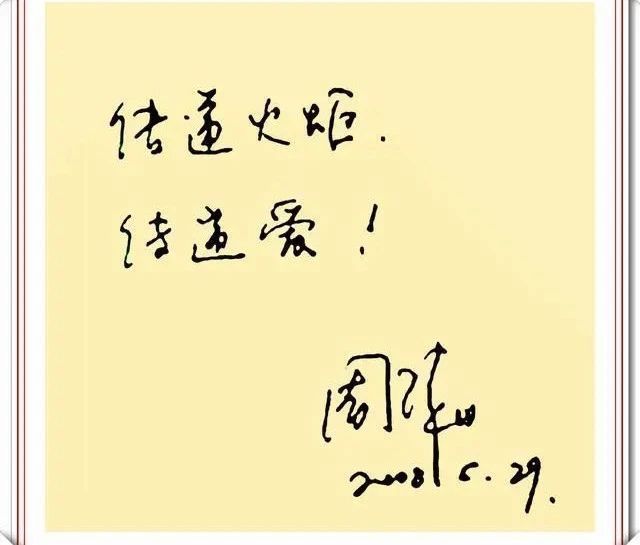 传递火炬.
传递爱！
周
2008 6.29.